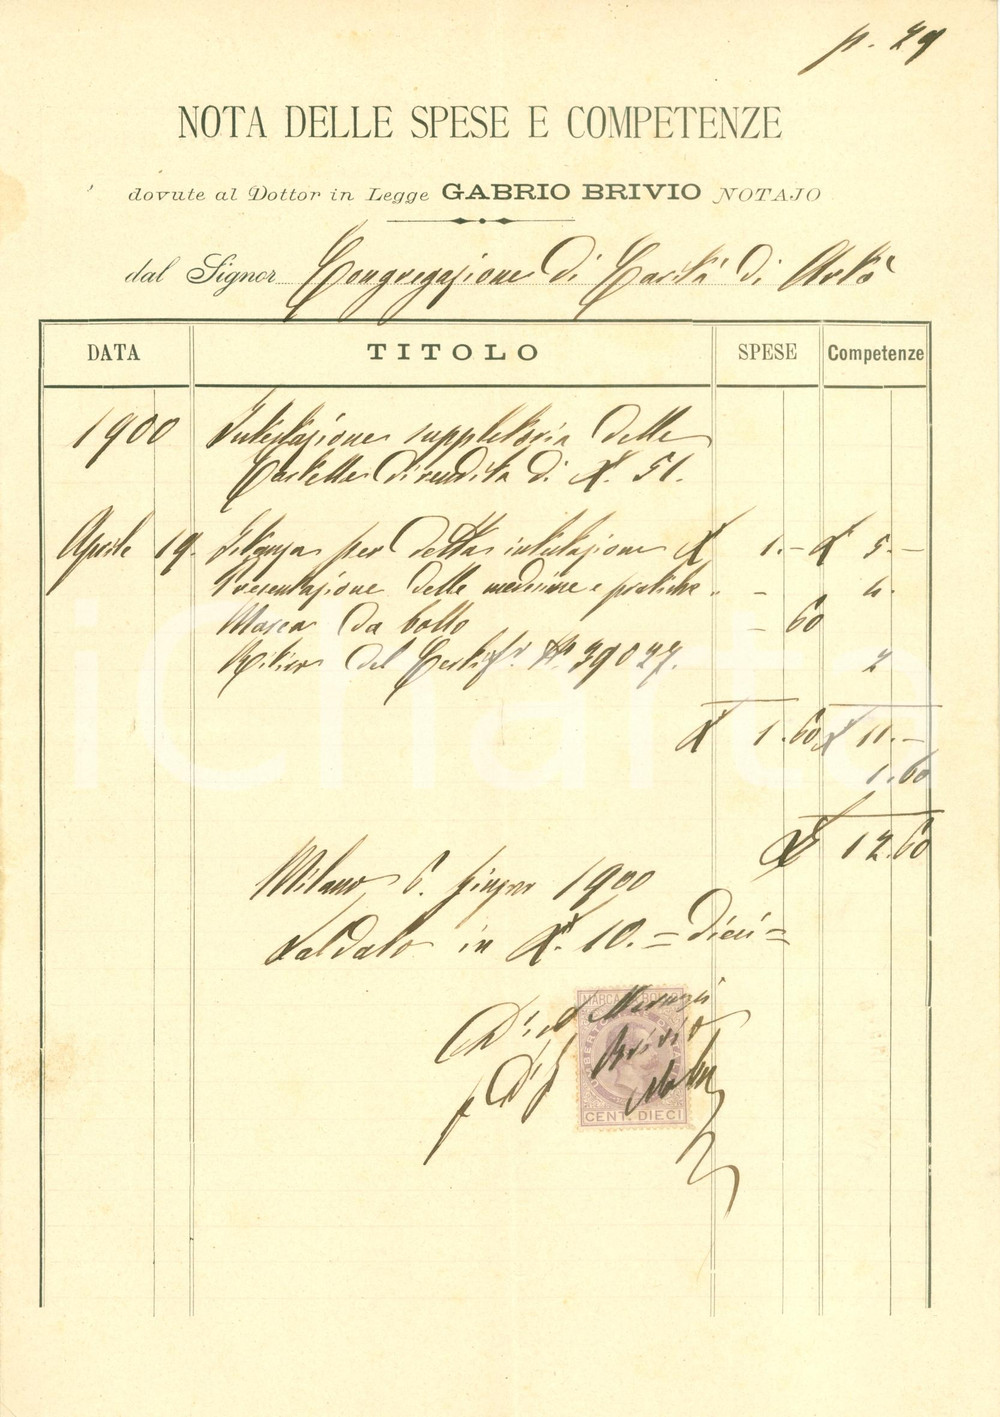 p. 29
NOTA DELLE SPESE E COMPETENZE
dovute al Dottor in Legge GABRIO BRIVIO NOTAJO
dal Signor Congregazione Di Carità Di
DATA TITOLO SPESE Competenze
1900 Intestazione suppletoria Delle
Cartelle Di rendita Di £. 51.
Aprile 19. Istanza per Detta intestazione £ 1.- £ 5.-
Presentazione delle medesime e pratiche " - 4.
Marca Da bollo - 60
Ritiro Del Certif. N 39027. 2
£ 1.60 £ 11.-
1.60
£ 12.60
Milano 6. giugno 1900
Saldato in £. 10. = Dieci =
MARCA DA BOLLO
Brivio
CENT. DIECI
iCharta